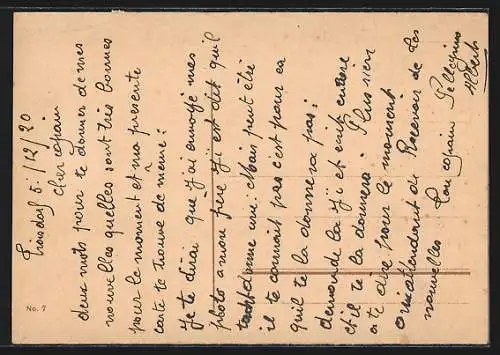 Troisdorf 5/12/20
Cher copain
deux mots pour te donner de mes
nouvelles quelles sont très bonnes
pour le moment et ma presente
carte te trouve de même:
Je te dirai que j'ai envoyé mes
photo a mon frere j'y est dit quil
tant donne une. Mais peut être
il te connait pas c'est pour ca
qu'il te la donnera pas:
demande la j'y et ecrit encore
et il te la donnera. Plus rien
a te dire pour le moment
en attendant de Recevoir de tes
nouvelles Ton copain Pellegrino
Albert
No. 7